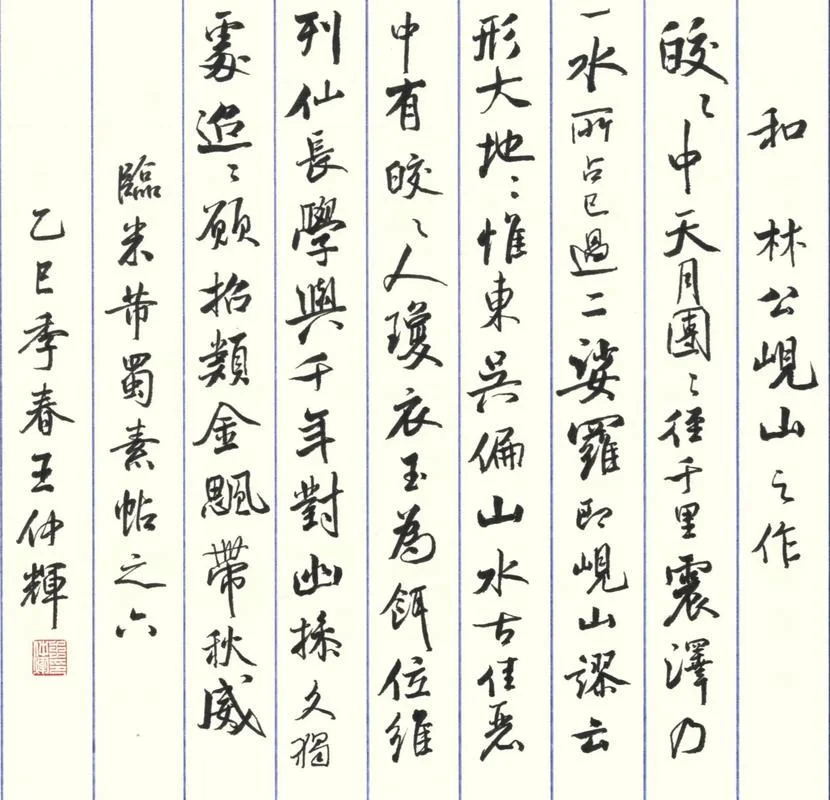 和 林公峴山之作
皎〻中天月團〻徑千里震澤乃
一水所占已過二娑羅即峴山謬云
形大地〻惟東吳偏山水古佳麗
中有皎〻人瓊衣玉為餌位維
列仙長學與千年對幽操久獨
處迢〻願招類金颸帶秋威
臨米芾蜀素帖之六
乙巳季春王仲輝